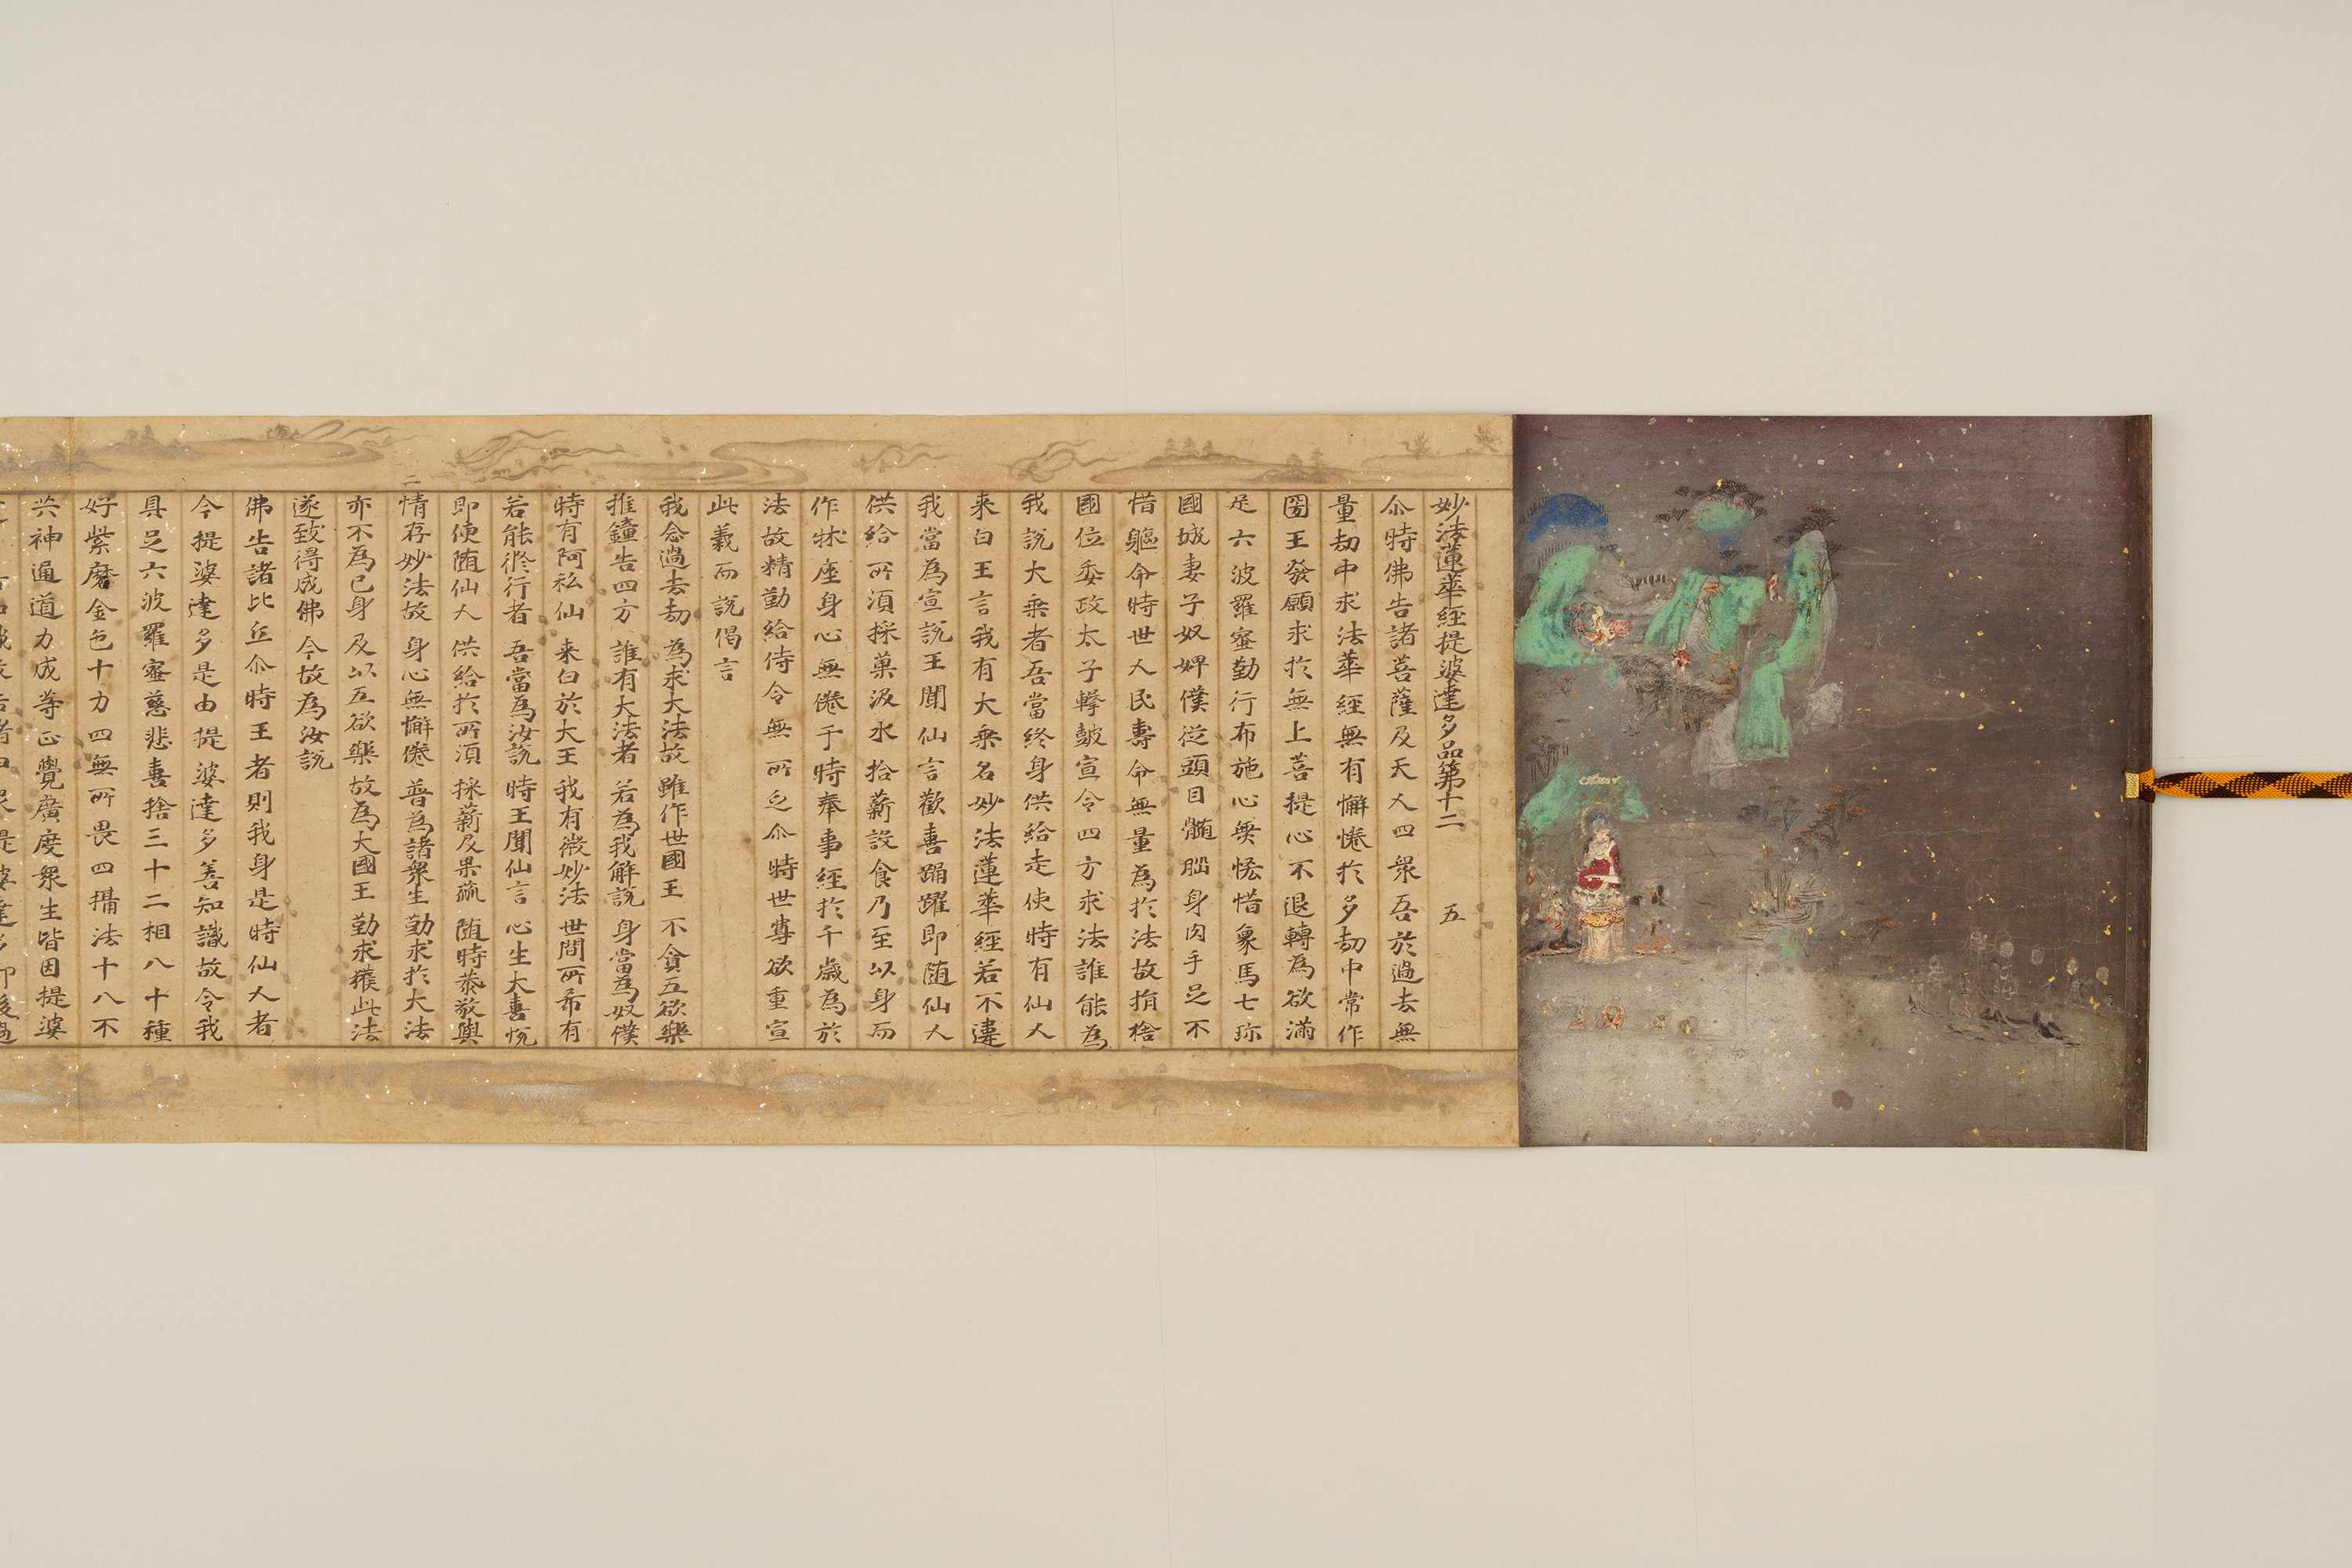 妙法蓮華經提婆達多品第十二　五
尒時佛告諸菩薩及天人四衆吾於過去無
量劫中求法華經無有懈惓於多劫中常作
國王發願求於無上菩提心不退轉為欲滿
足六波羅蜜勤行布施心無悋惜象馬七珎
國城妻子奴婢僕從頭目髓𦛁身肉手足不
惜軀命時世人民壽命無量為於法故捐捨
國位委政太子擊皷宣令四方求法誰能為
我說大乗者吾當終身供給走使時有仙人
来白王言我有大乗名妙法蓮華經若不違
我當為宣說王聞仙言歡喜踊躍即随仙人
供給所湏採菓汲水拾薪設食乃至以身而
作牀座身心無惓于時奉事經於千歲為於
法故精勤給侍令無所乏尒時世尊欲重宣
此義而說偈言
我念過去劫　為求大法故　雖作世國王　不貪五欲樂
推鐘告四方　誰有大法者　若為我解說　身當為奴僕
時有阿私仙　来白於大王　我有微妙法　世間所希有
若能修行者　吾當為汝說　時王聞仙言　心生大喜悅
即使随仙人　供給於所湏　採薪及果蓏　随時恭敬與
情存妙法故　身心無懈惓　普為諸衆生　勤求於大法
亦不為己身　及以五欲樂　故為大國王　勤求獲此法
遂致得成佛　今故為汝說
佛告諸比丘尒時王者則我身是時仙人者
今提婆達多是由提婆達多善知識故令我
具足六波羅蜜慈悲喜捨三十二相八十種
好紫磨金色十力四無所畏四攝法十八不
共神通道力成等正覺廣度衆生皆因提婆